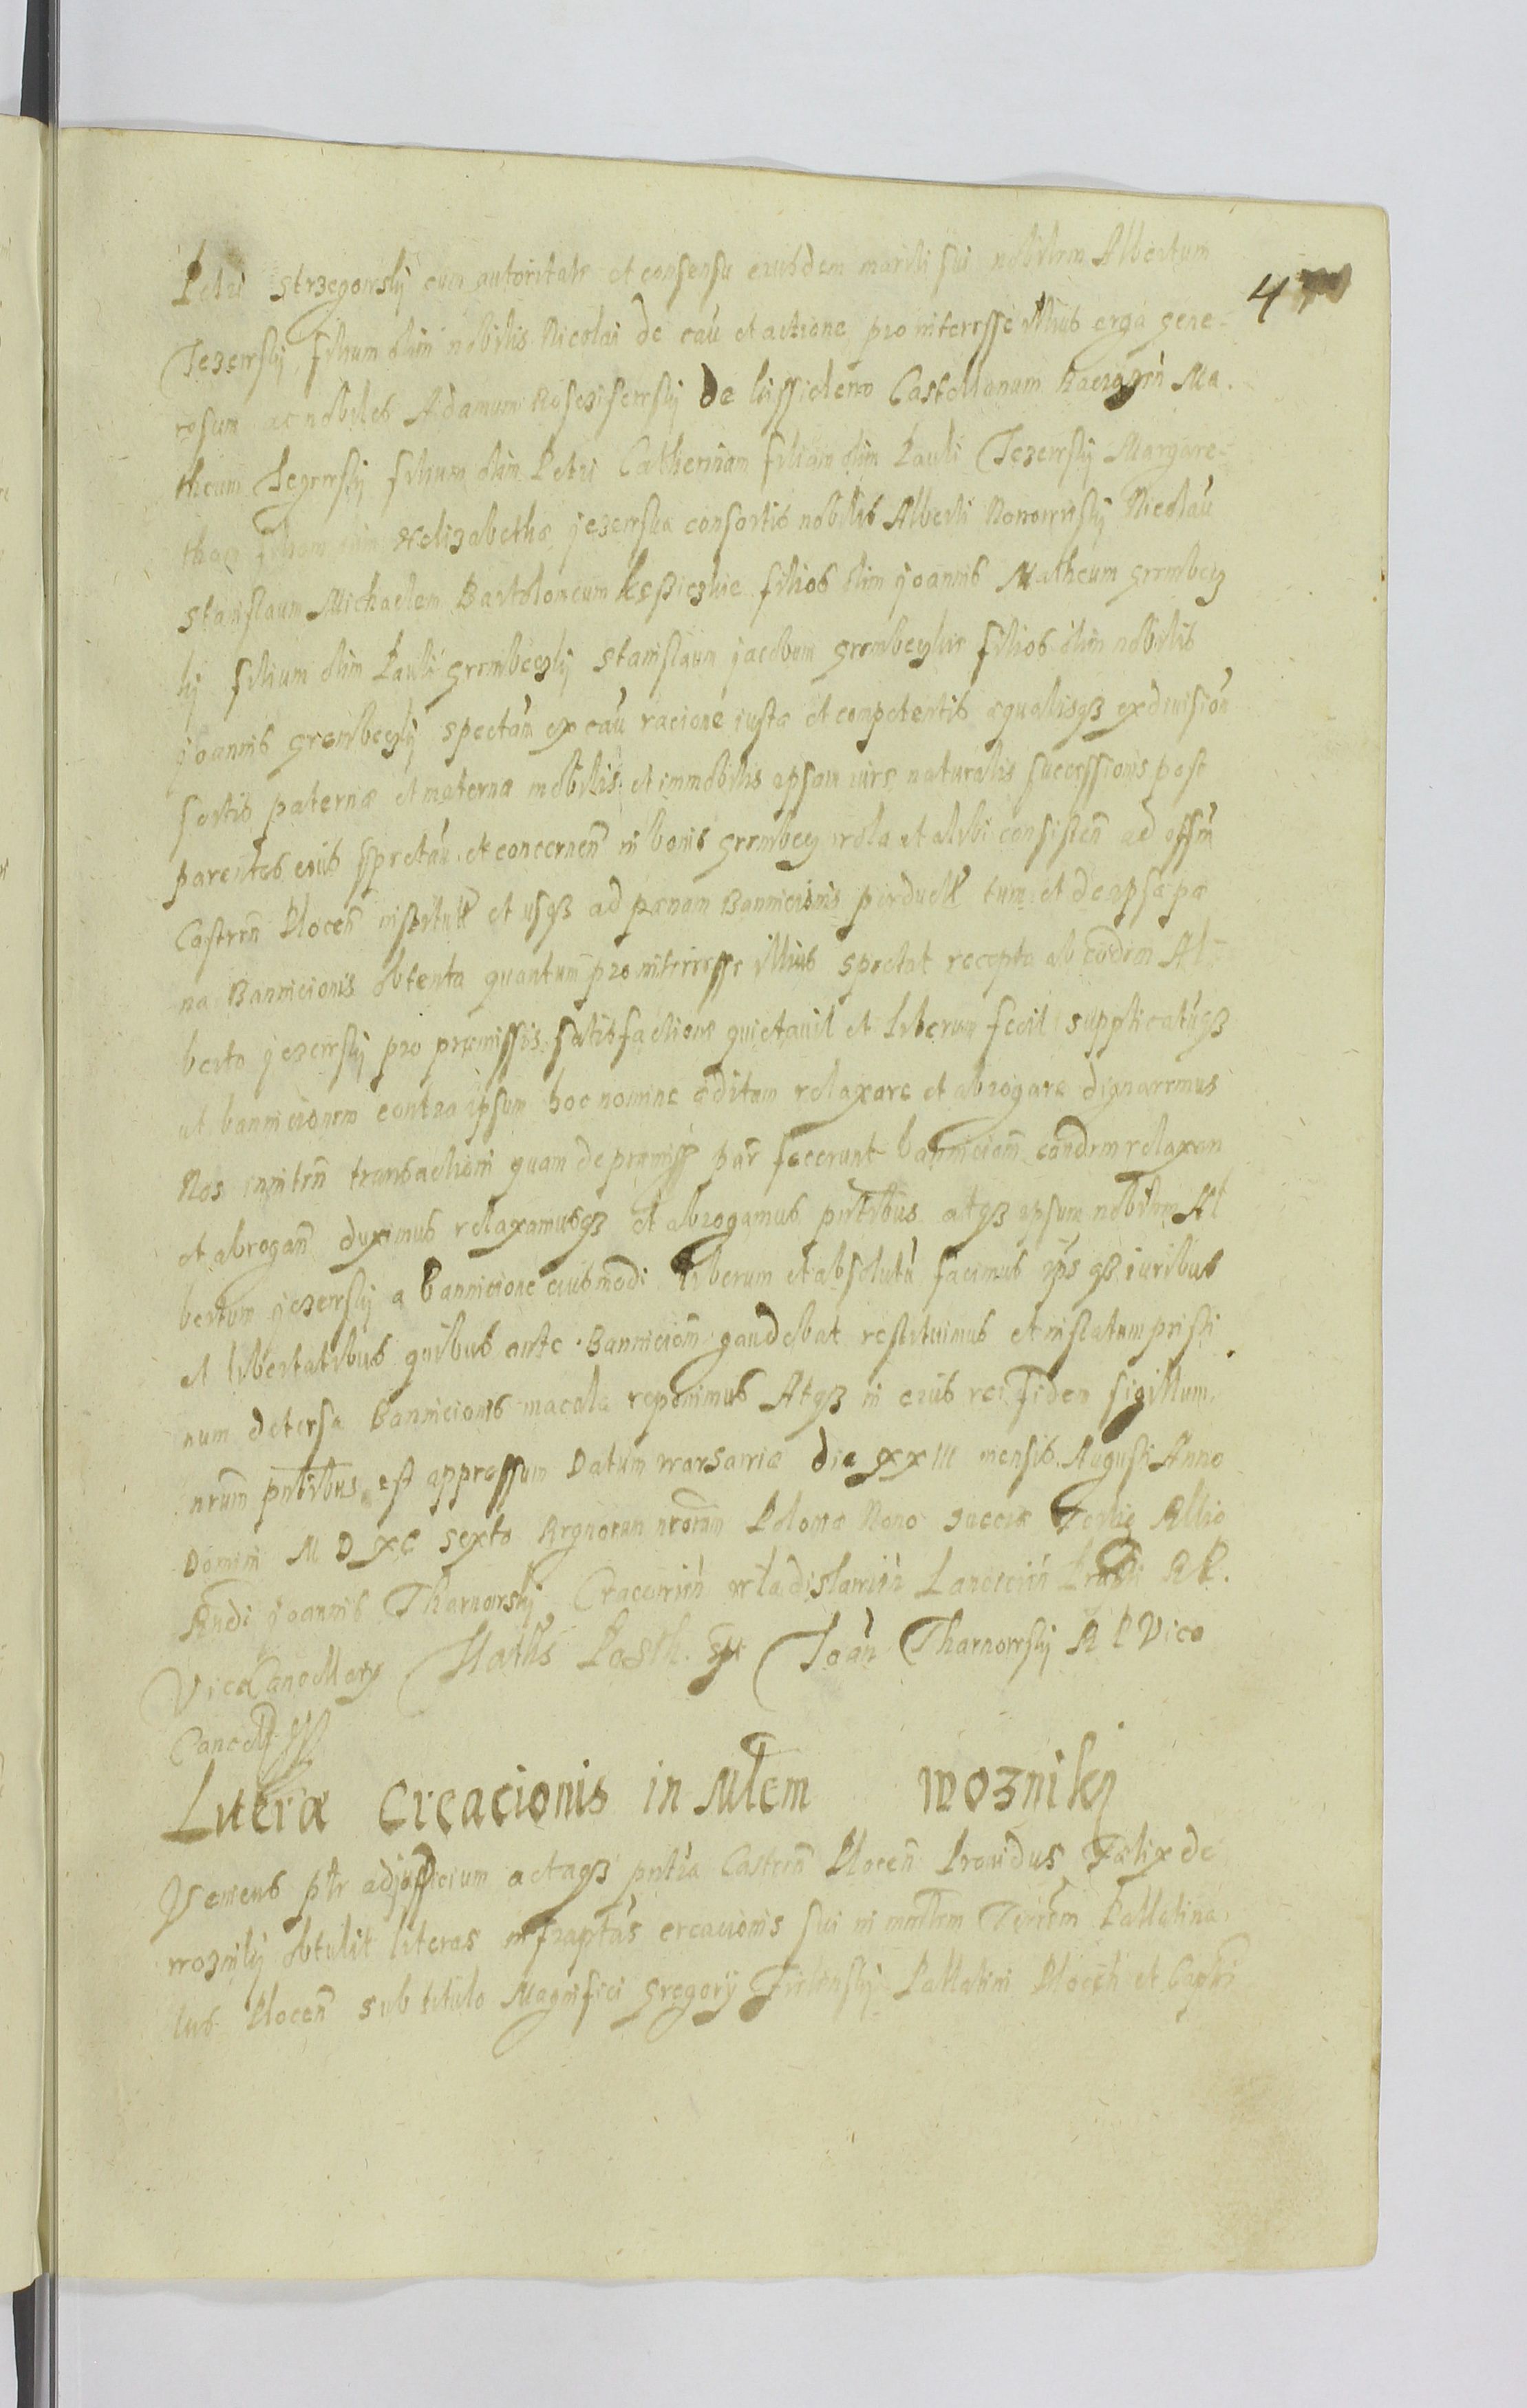 4
Petri Strzegowskij cum autoritate et consensu eiusdem mariti sui nobilem Albertum
Jezewskij filium olim nobilis Nicolai de cau et actione pro interesse illius erga gene-
rosum ac nobiles Adamum Rosciszewskij de Castellanum Raciązen Ma.
theum filium olim Petri Catherinam filiam olim Pauli Jezewskij Margare-
tham filiam olim Helizabethæ jezewska consortis nobilis Alberti Nicolau
Stanislaum Michaelem Bartolomeum filios olim joannis Matheum grembecz
kj filium olim Pauli grembeczkij Stanislaum jacobum grembeczkie filios olim nobilis
joannis grembeczkij spectan ex cau racione iusta et competentis æqualisqз ex diuision
sortis paternæ et maternæ mobilis et immobilis ipsam iure naturalis successionis post
parentes eius spectan et concernen in bonis grembecz wola et alibi consisten ad offm
Castren Plocen et usqз ad pænam Bannicionis tum et de ipsa pæ
na Bannicionis obtenta quantum pro interesse illius spectat recepta ab eodem Al-
berto jezewskij pro præmissis satisfactione quietauit et liberum fecit supplicatuqз
ut bannicionem contra ipsum hoc nomine editam relaxare et abrogare dignaremus
Nos inniten transactioni quam de præmiss par fecerunt bannicionem eandem relaxan
et abrogan duximus relaxamusqз et abrogamus pntibus atqз ipsum nobilem Al
bertum jezewskij a bannicione eiusmodi liberum et absolutu facimus ips qз iuribus
et libertatibus quibus ante Bannicioem gaudebat restituimus et in statum pristi
num detersa bannicionis macula reponimus Atqз in eius rei fidem sigillum
nrum pntibus est appressum Datum warsawiæ die XXIII mensis Augusti Anno
Domini M D XC sexto Regnorum nrorum Poloniæ Nono Sueciæ Tertio
Rndi joannis Tharnowskij Cracowien wladislawien Lancicien RP.
ViceCancellarij Joan Tharnowskij R P Vice
Cancell
Literæ Creacionis in Mlem Woznikj
Veniens ptr ad officium actaqз pntia Castren Plocen Prouidus Fælix de
woznikj obtulit literas infraptas creacionis sui in mnlrem Terrem Pallatina
tus Plocen sub titulo Magnifici Gregorij Zielinskij Pallatini Plocen et Capti